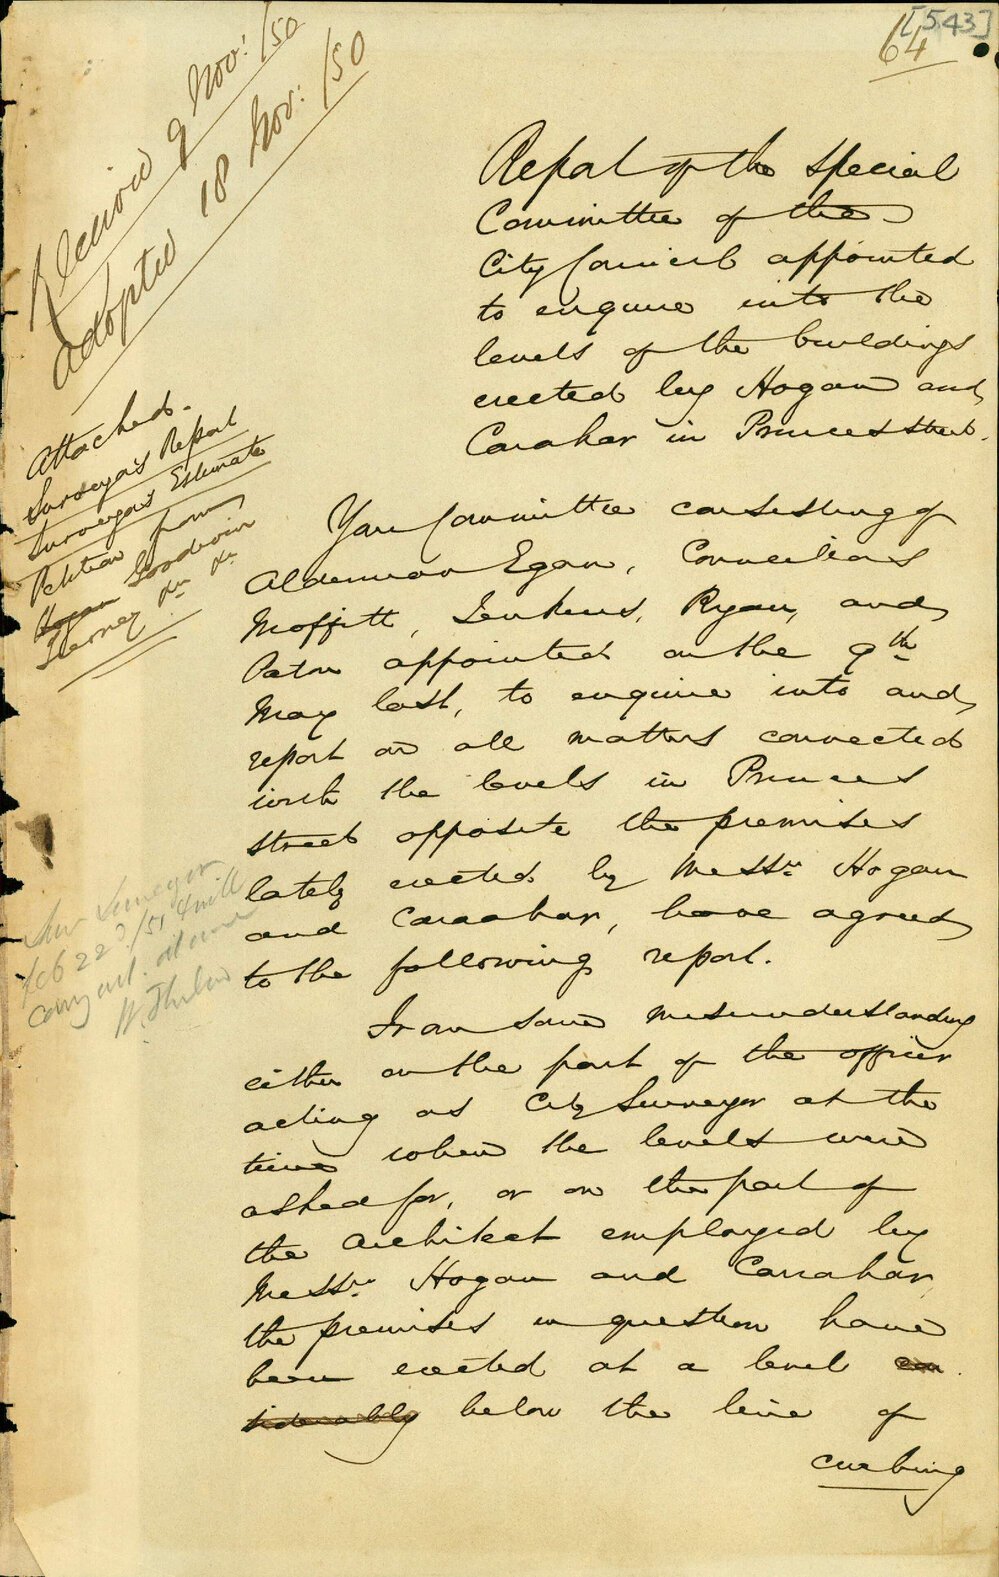 [543]
64
Received 9 Nov: /50
adopted 18 Nov: /50
Report of the Special
Committee of the
City Council appointed
to enquire into the
levels of the buildings
erected by Hogan and
Carahar in Princes Street.
Attached.
Surveyor's Report
Surveyor's Estimate
Petition from
Hogan Goodwin
Tierney Do Do
Your Committee consisting of
Alderman Egan, Councillors
Moffitt, Jenkins, Ryan, and
Paton appointed on the 9th
May last, to enquire into and
report on all matters connected
with the levels in Princes
Street opposite the premises
lately erected by Messrs Hogan
and Caraahar, have agreed
to the following report.
From some misunderstanding
either on the part of the officer
acting as City Surveyor at the
time when the levels were
asked for, or on the part of
the Architect employed by
Messrs Hogan and Carrahar,
the premises in question have
been erected at a level con
siderably below the line of
curbing
Surveyor
Feb 22d /51 & will
carry out
W.